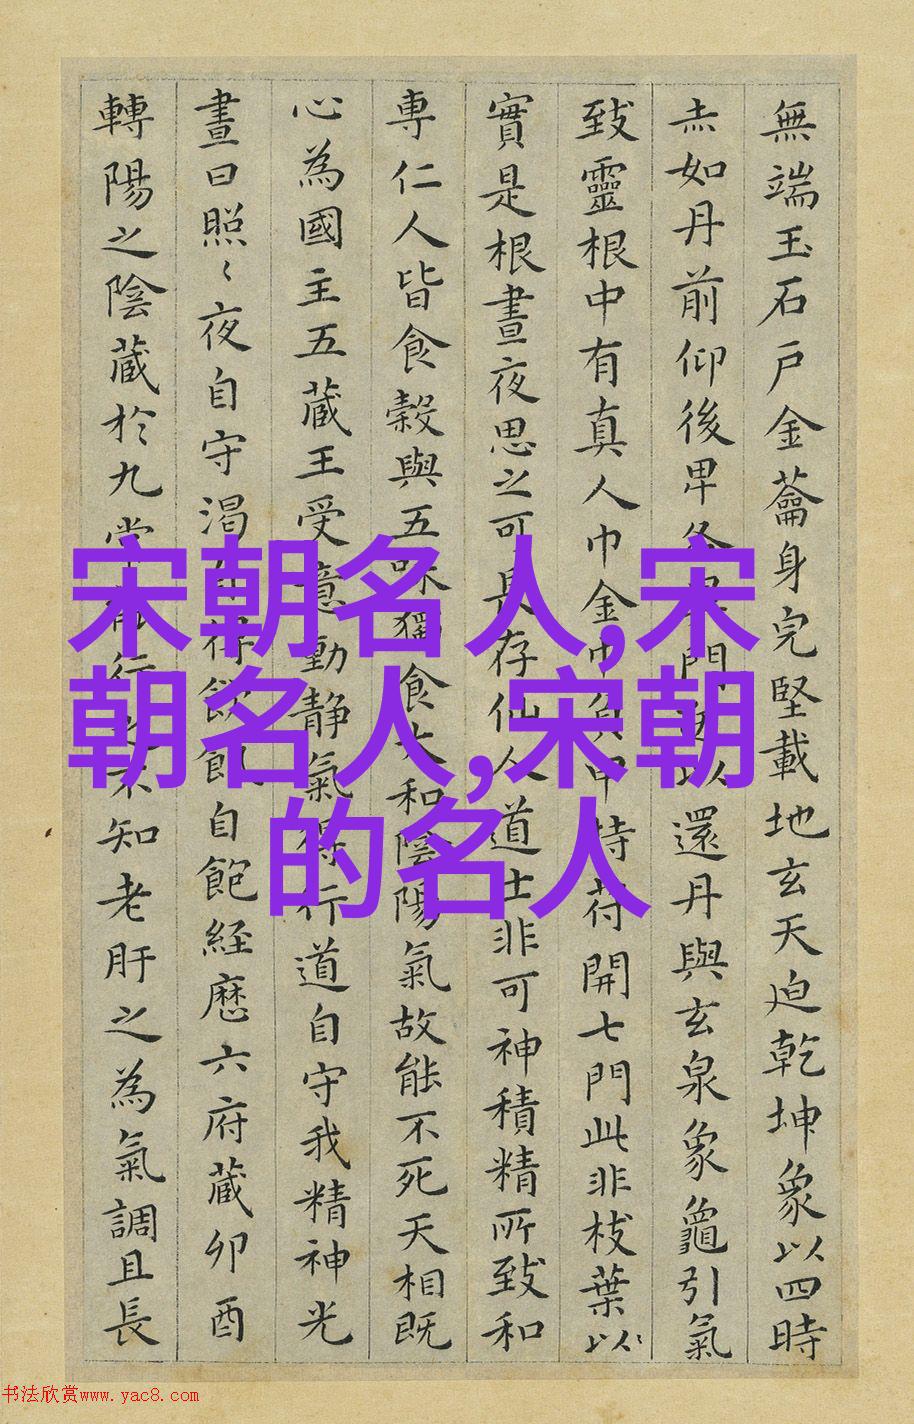 無端玉石戶金蘥身完堅載地玄天迫乾坤象以四時
赤如丹前仰後卑各異門送以還丹與玄泉象龜引氣
致靈根中有真人巾金巾負甲持符開七門此非枝葉以
實是根晝夜思之可長存仙人道士非可神積精所致和
專仁人皆食穀與五味獨食大和陰陽氣故能不死天相既
心為國主五蔵王受意動静氣得行道自守我精神光
晝日照〻夜自守渴自得飲飢自飽経歷六府蔵卯酉
轉陽之陰蔵於九常能行之不知老肝之為氣調且長
宋朝名人,宋
朝名人,宋朝
的名人
书法欣赏www.yac8.com